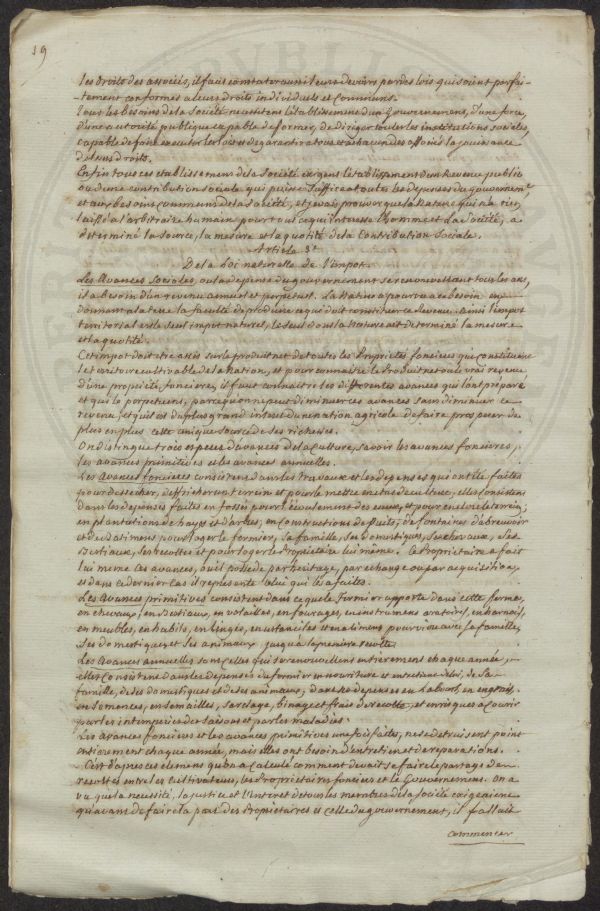 19
les droits des associés, il faut constater aussi leurs devoirs par des lois qui soient parfai-
-tement conformes a leurs droits individuels et communs.
Tous les besoins de la Société necessitent l'établissement d'un Gouvernement, d'une force,
d'une autorité publique capable de former, de diriger toutes les institutions sociales,
capable de faire executer les loix et de garantir a tous et a chacun des associés la jouissance
de leurs droits.
Enfin tous ces etablissemens de la Société exigent l'établissement d'un Revenu public
ou d'une contribution sociale qui puisse suffire a toutes les depenses du gouvernemt
et aux besoins communs de la Société, et je vais prouver que la Nature qui n'a rien
laissé a l'arbitraire humain pour tout ce qui interesse l'homme et la Société, a
determiné la source, la mesure et la quotité de la Contribution Sociale.
Article 3e
De la Loi naturelle de l'impot.
Les Avances Sociales, ou la depense du gouvernement se renouvellent tous les ans,
il a besoin d'un revenu annuel et perpetuel. La Nature a pourvu a ce besoin en
donnant a la terre la faculté de produire ce qui doit constituer ce Revenu. Ainsi l'impot
territorial est le seul impot naturel, le seul dont la Nature ait determiné la mesure
et la quotité.
Cet impot doit etre assis sur le produit net de toutes les Propriétés foncieres qui constituent
le territoire cultivable de la Nation, et pour connaitre le Produit net ou le vrai revenu
d'une propriété fonciere, il faut connaitre les differentes avances qui l'ont préparé
et qui le perpetuent, parce qu'on ne peut diminuer ces avances sans diminuer ce
revenu, et qu'il est du plus grand interet d'une nation agricole de faire prosperer de
plus en plus cette unique source de ses richesses.
On distingue trois especes d'avances de la Culture, savoir les avances foncieres,
les avances primitives et les avances annuelles.
Les Avances foncieres consistent dans les travaux et les depenses qui ont été faites
pour dessecher, defricher un terrein et pour le mettre en etat de culture, elles consistent
dans les depenses faites en fossés pour l'écoulement des eaux, et pour enclore le terrein;
en plantations de hayes et d'arbres, en Constructions de Puits, de fontaines d'abreuvoir
et de Batimens pour loger le fermier, sa famille, ses domestiques, ses chevaux, ses
Bestiaux, ses recoltes et pour loger le Propriétaire lui même. Le Propriétaire a fait
lui meme ces avances, ou il possede par heritage, par echange ou par acquisition,
et dans ce dernier cas il représente celui qui les a faites.
Les Avances primitives consistent dans ce que le fermier apporte dans cette ferme,
en chevaux, en Bestiaux, en volailles, en fourages, en instrumens aratoires, en harnois,
en meubles, en habits, en linges, en ustanciles et en alimens pour vivre avec sa famille,
ses domestiques et ses animaux jusqu'à la première recolte.
Les Avances annuelles sont celles qui se renouvellent entierement chaque année,
elles Consistent dans les depenses du fermier en nourriture et entretien de lui, de sa
famille, de ses domestiques et de ses animaux; dans les depenses en Labours, en engrais,
en semences, en semailles, sarclage, binage et frais de recolte, et en risques a courir
par les intemperies des saisons et par les maladies.
Les Avances foncieres et les avances primitives une fois faites, ne se detruisent point
entierement chaque année, mais elles ont besoin d'entretien et de reparations.
C'est d'apres ces elemens qu'on a calculé comment devait se faire le partage des
recoltes entre les Cultivateurs, les Propriétaires fonciers et le Gouvernement. On a
vu que la necessité, la justice et l'interet de tous les membres de la Société exigeaient
qu'avant de faire la part des Propriétaires et celle du gouvernement, il fallait
commencer